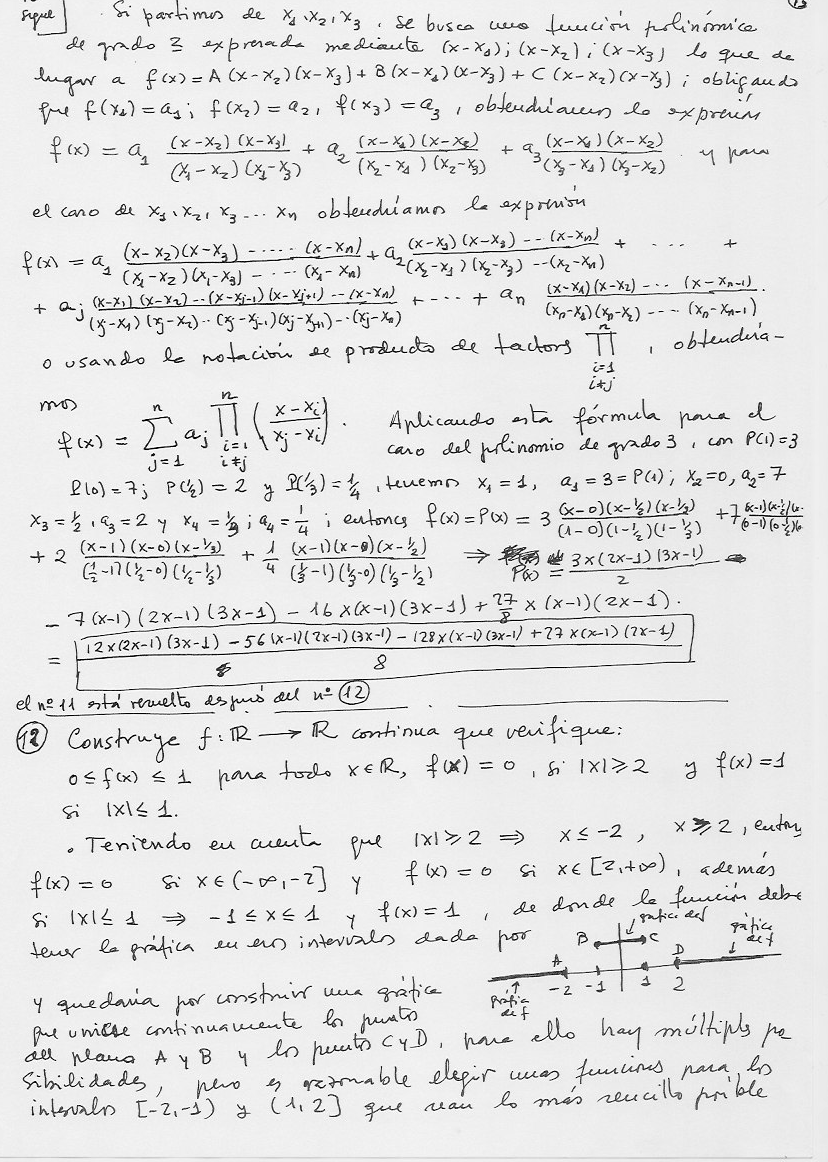 Sigue
Si partimos de x₁, x₂, x₃, se busca una función polinómica
de grado 2 expresada mediante (x-x₁); (x-x₂); (x-x₃) lo que da
lugar a f(x) = A(x-x₂)(x-x₃) + B(x-x₁)(x-x₃) + C(x-x₂)(x-x₃); obligando
que f(x₁)=a₁; f(x₂)=a₂, f(x₃)=a₃, obtendríamos la expresión
f(x) = a₁ (x-x₂)(x-x₃)/(x₁-x₂)(x₁-x₃) + a₂ (x-x₁)(x-x₃)/(x₂-x₁)(x₂-x₃) + a₃ (x-x₁)(x-x₂)/(x₃-x₁)(x₃-x₂) . y para
el caso de x₁, x₂, x₃ ... xₙ obtendríamos la expresión
f(x) = a₁ (x-x₂)(x-x₃) ----- (x-xₙ)/(x₁-x₂)(x₁-x₃) ---- (x₁-xₙ) + a₂ (x-x₁)(x-x₃) -- (x-xₙ)/(x₂-x₁)(x₂-x₃) --(x₂-xₙ) + --- +
+ aⱼ (x-x₁)(x-x₂)--(x-xⱼ₋₁)(x-xⱼ₊₁)--(x-xₙ)/(xⱼ-x₁)(xⱼ-x₂)--(xⱼ-xⱼ₋₁)(xⱼ-xⱼ₊₁)--(xⱼ-xₙ) + --- + aₙ (x-x₁)(x-x₂)--- (x-xₙ₋₁)/(xₙ-x₁)(xₙ-x₂) ---- (xₙ-xₙ₋₁) .
o usando la notación de producto de factores ∏ⁿ i=1 i≠j , obtendría-
mos
f(x) = Σⁿ j=1 aⱼ ∏ⁿ i=1 i≠j ( x-xᵢ / xⱼ-xᵢ ) . Aplicando esta fórmula para el
caso del polinomio de grado 3, con P(1)=3
P(0)=7; P(1/2)=2 y P(1/3)=1/4, tenemos x₁=1, a₁=3=P(1); x₂=0, a₂=7
x₃=1/2, a₃=2 y x₄=1/3; a₄=1/4; entonces f(x)=P(x)= 3 (x-0)(x-1/2)(x-1/3)/(1-0)(1-1/2)(1-1/3) + 7 (x-1)(x-1/2)(x-/(0-1)(0-1/2)(0
+ 2 (x-1)(x-0)(x-1/3)/(1/2-1)(1/2-0)(1/2-1/3) + 1/4 (x-1)(x-0)(x-1/2)/(1/3-1)(1/3-0)(1/3-1/2) ⇒ P(x) = 3x(2x-1)(3x-1)/2 -
- 7(x-1)(2x-1)(3x-1) - 16x(x-1)(3x-1) + 27/8 x(x-1)(2x-1).
= 12x(2x-1)(3x-1) - 56(x-1)(2x-1)(3x-1) - 128x(x-1)(3x-1) + 27x(x-1)(2x-1)/8
el nº 11 está resuelto después del nº 12
12 Construye f: ℝ → ℝ continua que verifique:
0 ≤ f(x) ≤ 1 para todo x∈ℝ, f(x) = 0, si |x| ≥ 2 y f(x)=1
si |x| ≤ 1.
. Teniendo en cuenta que |x| ≥ 2 ⇒ x ≤ -2, x ≥ 2, entonces
f(x) = 0 si x∈(-∞,-2] y f(x) = 0 si x∈[2,+∞), además
si |x| ≤ 1 ⇒ -1 ≤ x ≤ 1 y f(x) = 1, de donde la función debe
tener la gráfica en esos intervalos dada por
gráfica de f
B C
gráfica de f
A D
-2 -1 1 2
gráfica de f
y quedaría por construir una gráfica
que uniese continuamente los puntos
del plano A y B y los puntos C y D, para ello hay múltiples po
sibilidades, pero es razonable elegir unas funciones para los
intervalos [-2,-1) y (1,2] que sean lo más sencillo posible